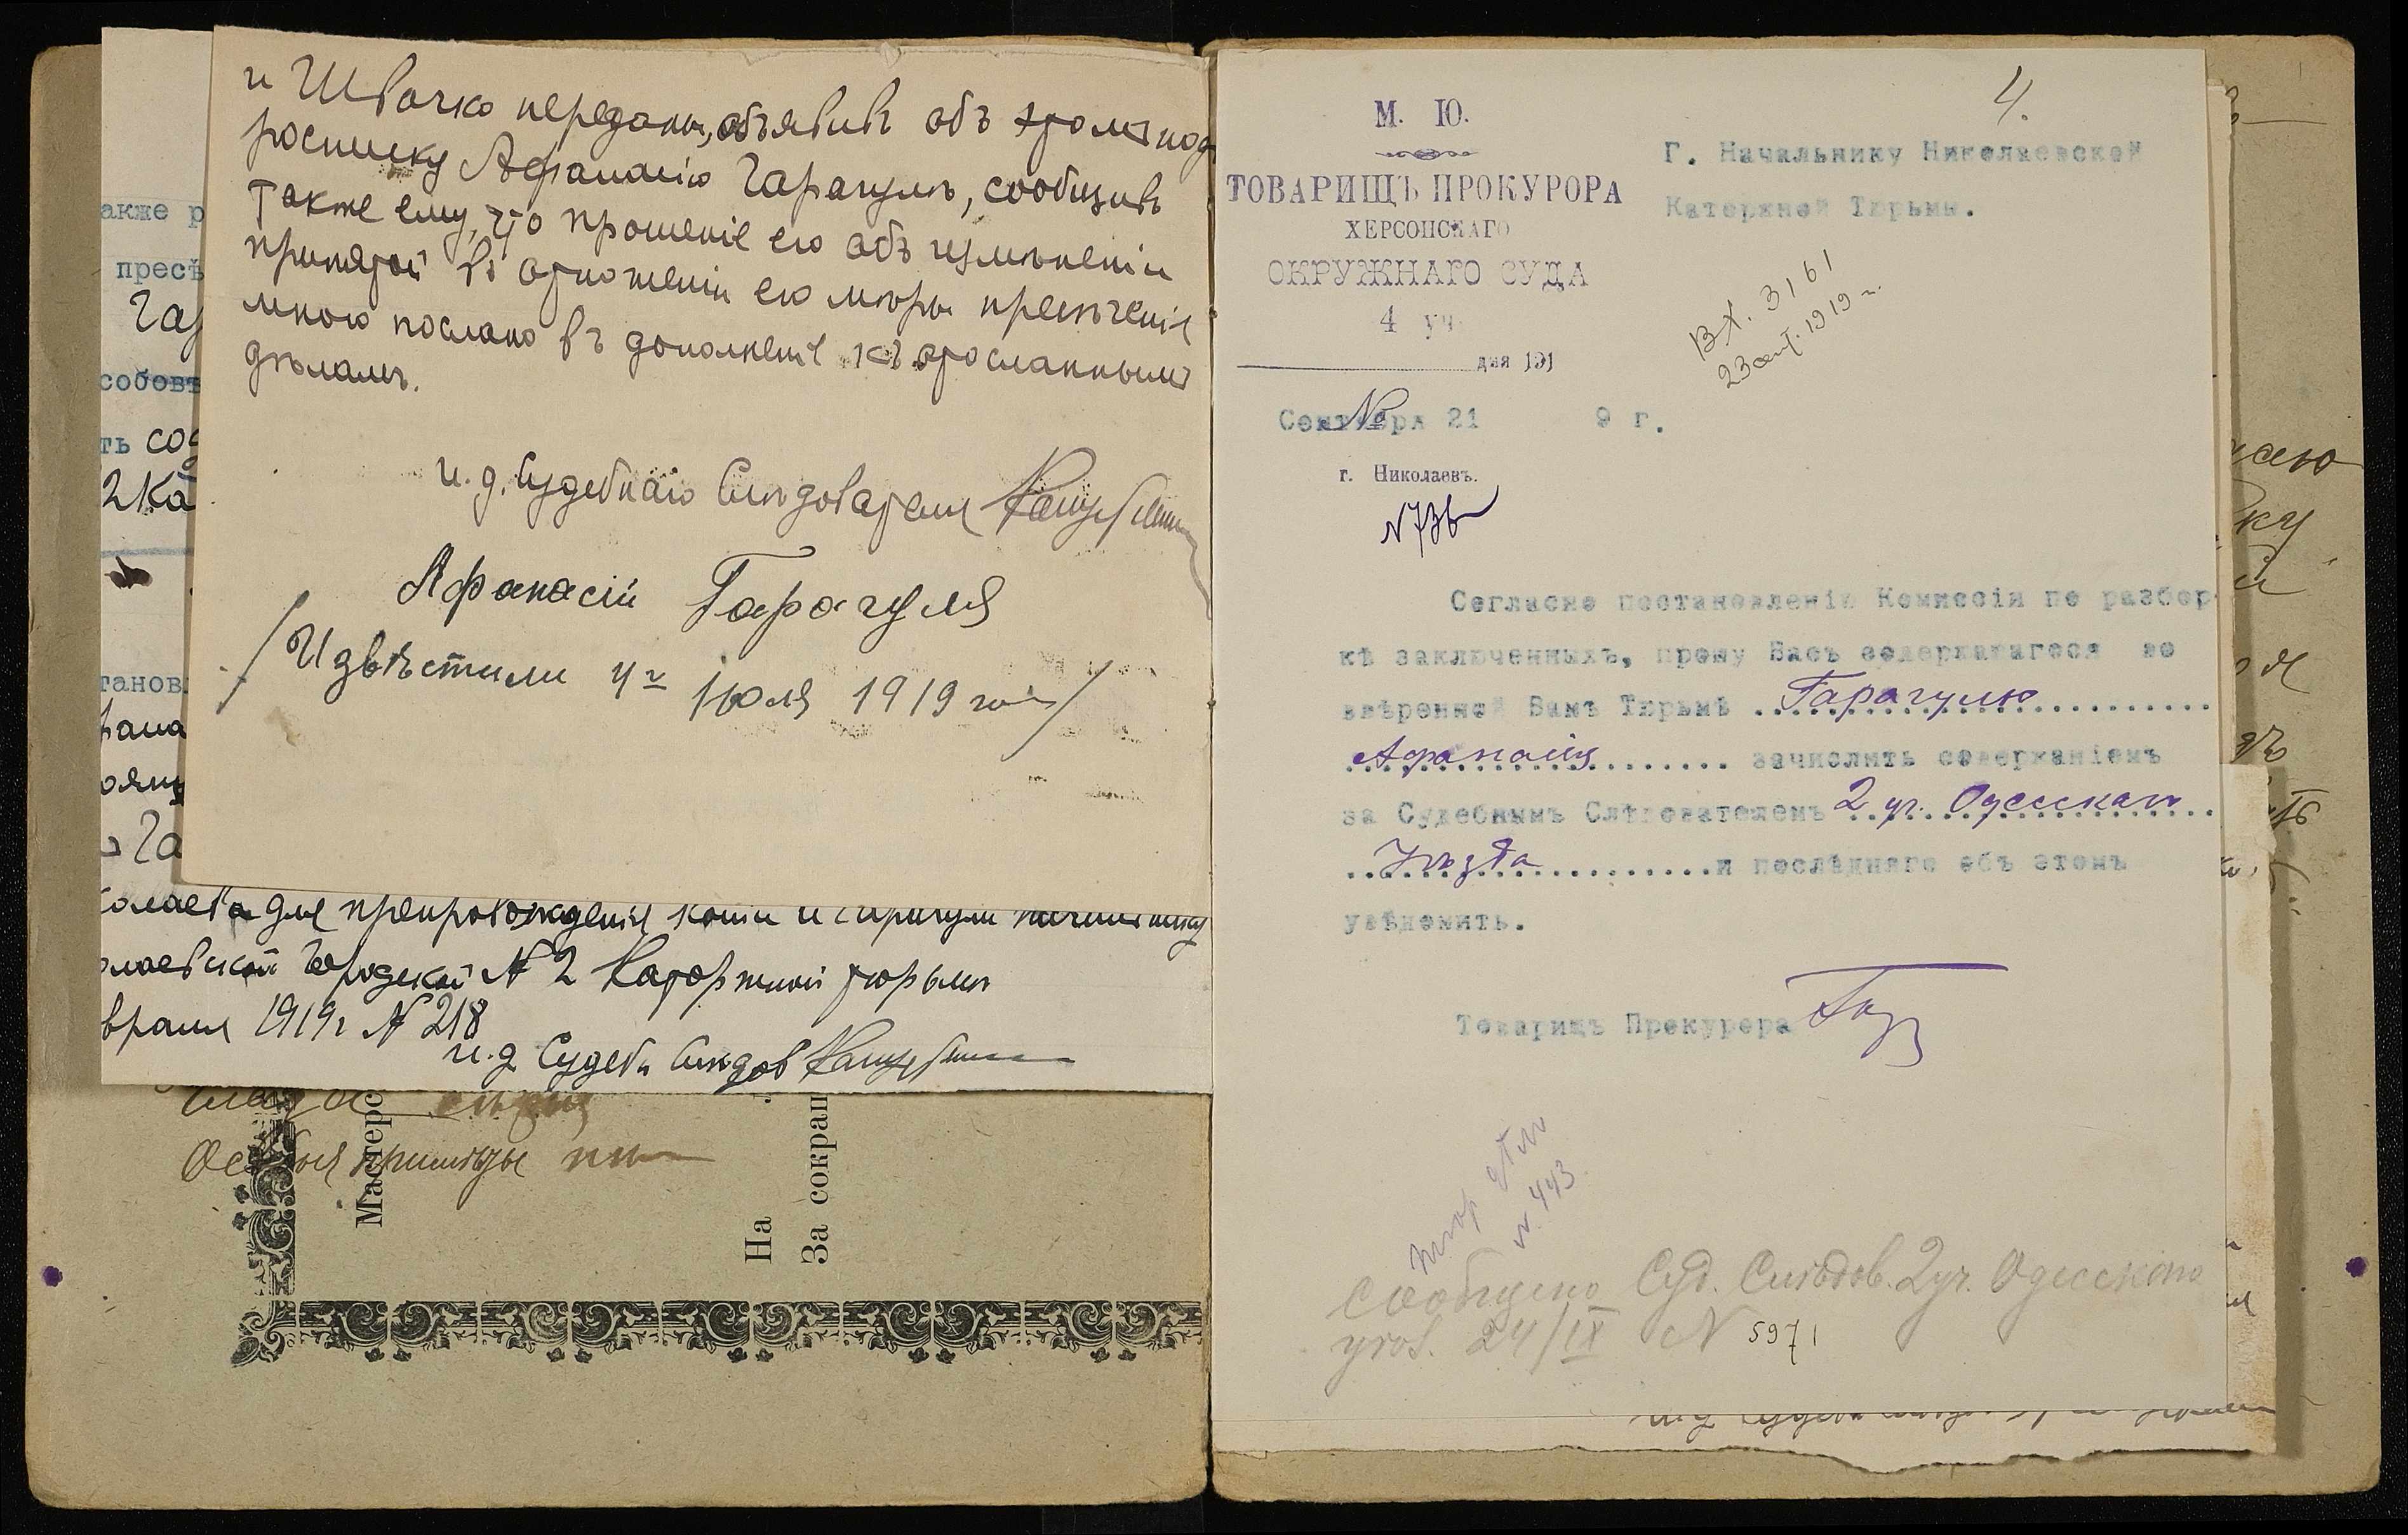 и Швачко переданы, объявивъ объ этомъ под
росписку Афанасію Гарагулѣ, сообщивъ
также ему, что прошеніе его объ измѣненіи
принятой въ отношеніи его мѣры пресѣченія
мною послано въ дополненіе къ отосланнымъ
дѣламъ.
и. д. Судебнаго Слѣдователя
Афанасій Гарагуля
/Извѣстили 4го Июля 1919 года/
акже р
пресѣ
Гар
собовъ
ть сод
2 Ка
танов
фана
Га
колаева для препровожденія копіи и Гарагули начальнику
олаевской Городской № 2 Каторжной тюрьмы
враля 1919 г № 218
и. д Судебн Слѣдов
Особыя примѣты нѣтъ
Мастерс
На
За сокращ
4.
М. Ю.
ТОВАРИЩЪ ПРОКУРОРА
ХЕРСОНСКАГО
ОКРУЖНАГО СУДА
4 уч.
дня 191
Сентября 21 9 г.
№
г. Николаевъ.
N 736
Г. Начальнику Николаевской
Каторжной Тюрьмы.
Вх. 3161
23 сент. 1919 г.
Согласно постановленію Комиссіи по разбор-
кѣ заключенныхъ, прошу Васъ содержащагося во
ввѣренной Вамъ Тюрьмѣ Гарагулю
Афанасія зачислить содержаніемъ
за Судебнымъ Слѣдователемъ 2 уч. Одесскаго
Уѣзда и послѣдняго объ этомъ
увѣдомить.
Товарищъ Прокурора
N. 443
Сообщено Суд. Слѣдов. 2 уч. Одесскаго
уѣз. 24/IX N 5971